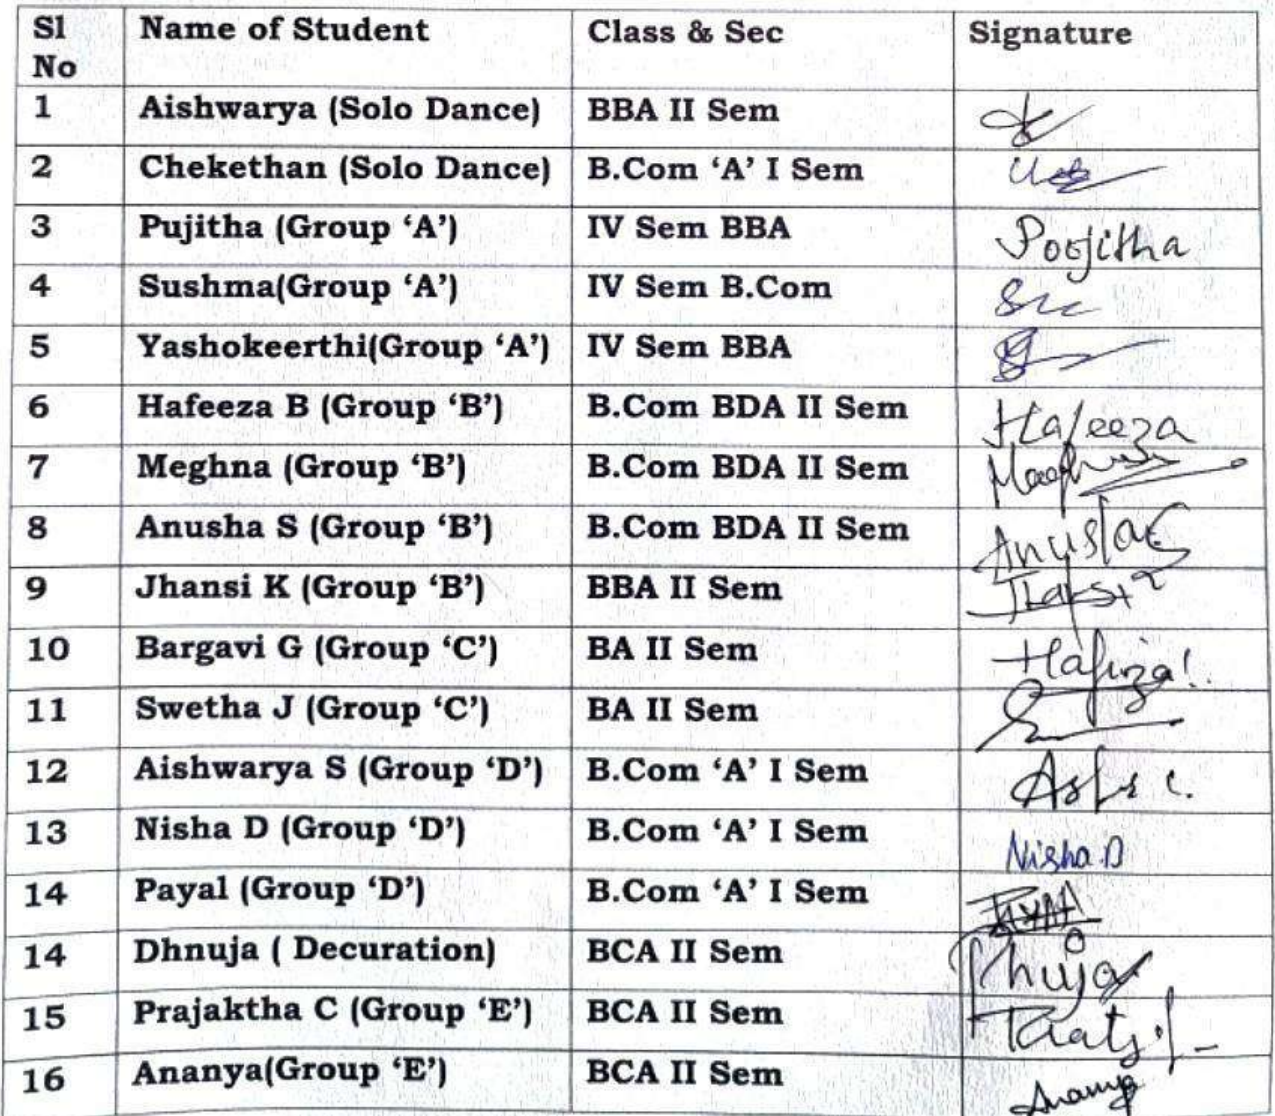 Sl No Name of Student Class & Sec Signature
1 Aishwarya (Solo Dance) BBA II Sem
2 Chekethan (Solo Dance) B.Com ‘A’ I Sem
3 Pujitha (Group ‘A’) IV Sem BBA Poojitha
4 Sushma(Group ‘A’) IV Sem B.Com
5 Yashokeerthi(Group ‘A’) IV Sem BBA
6 Hafeeza B (Group ‘B’) B.Com BDA II Sem Hafeeza
7 Meghna (Group ‘B’) B.Com BDA II Sem
8 Anusha S (Group ‘B’) B.Com BDA II Sem
9 Jhansi K (Group ‘B’) BBA II Sem
10 Bargavi G (Group ‘C’) BA II Sem
11 Swetha J (Group ‘C’) BA II Sem
12 Aishwarya S (Group ‘D’) B.Com ‘A’ I Sem
13 Nisha D (Group ‘D’) B.Com ‘A’ I Sem Nisha D
14 Payal (Group ‘D’) B.Com ‘A’ I Sem
14 Dhnuja ( Decuration) BCA II Sem
15 Prajaktha C (Group ‘E’) BCA II Sem
16 Ananya(Group ‘E’) BCA II Sem Ananya